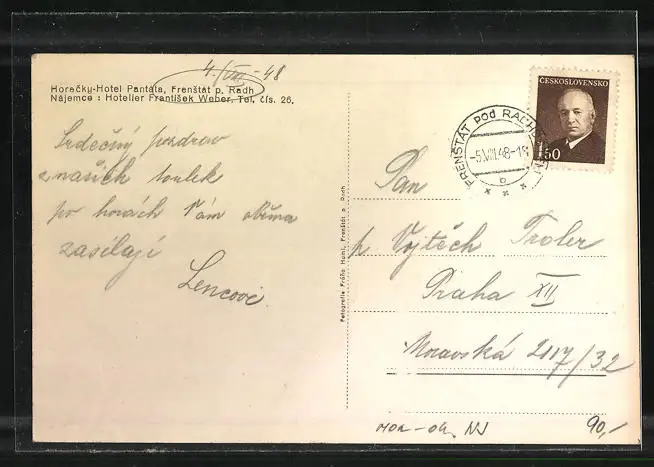 4./VIII - 48
Horečky-Hotel Pantáta, Frenštát p. Radh
Nájemce : Hotelier František Weber, Tel, čís. 26.
Srdečný pozdrav
z našich toulek
po horách Vám oběma
zasílají
Lencovi.
Fotografie Fráňo Huml, Frenštát p. Radh
ČESKOSLOVENSKO
1.50
FRENŠTÁT POD RADHOŠTĚM
-5.VIII.48-18
b
Pan
p Vojtěch Troler
Praha XII
Moravská 2117/32
MOR-OA NJ
90,-